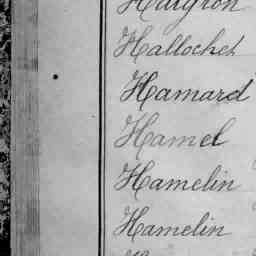 Haigron
Hallochet
Hamard
Hamel
Hamelin
Hamelin